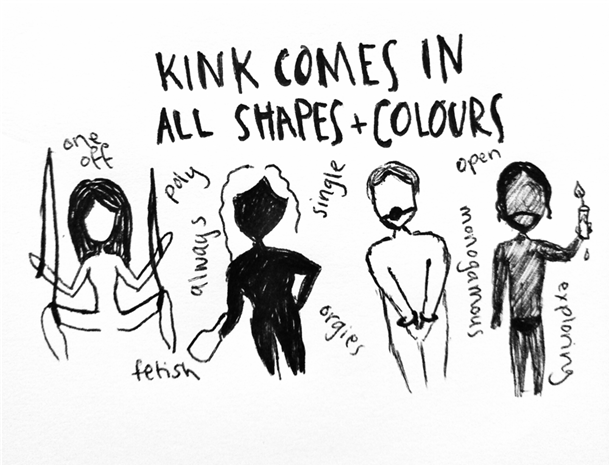 KINK COMES IN
ALL SHAPES + COLOURS
one
off
poly
always
single
open
monogamous
exploring
orgies
fetish